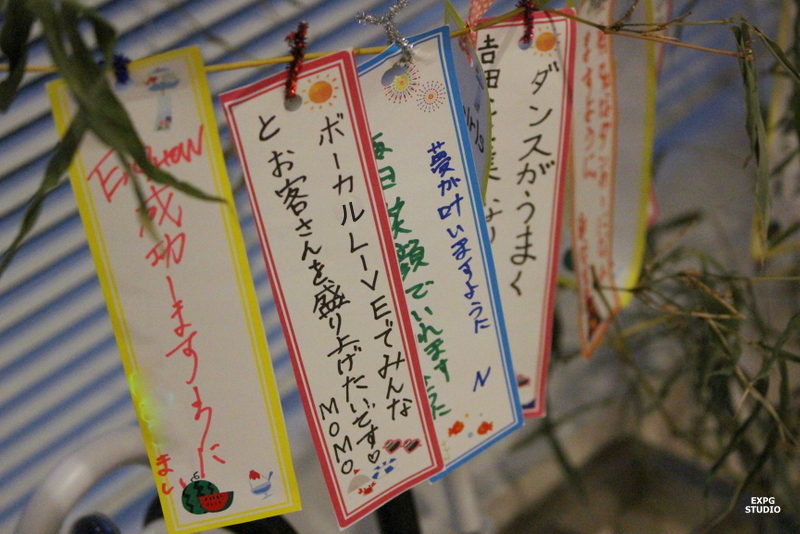 成功しますように
ボーカルLIVEでみんな
とお客さんを盛り上げたいです♡
MOMO
夢が叶いますように
毎日笑顔でいれますように
N
ダンスがうまく
ますように
EXPG
STUDIO